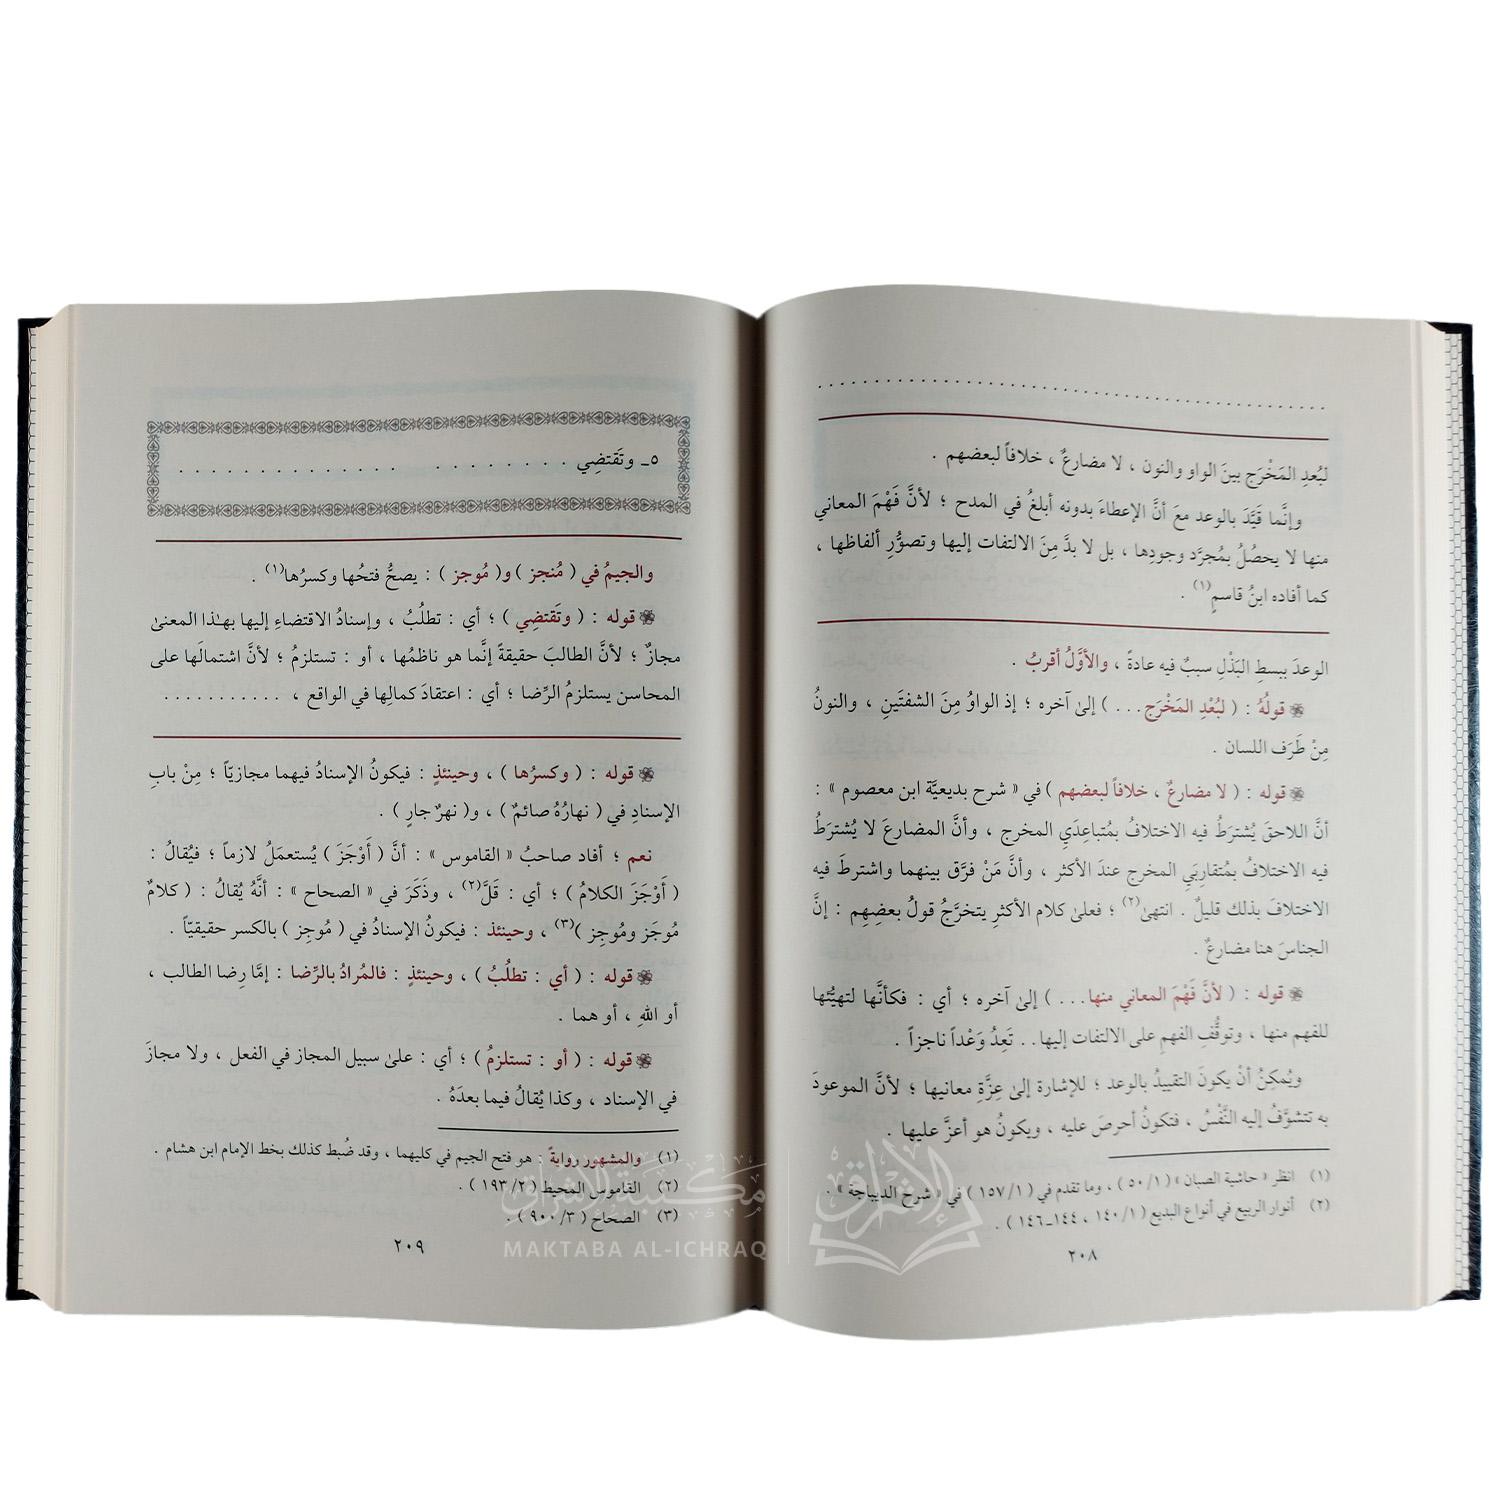 لبُعدِ المَخْرَجِ بينَ الواو والنون ، لا مضارعٌ ، خلافاً لبعضهم .
وإنَّما قَيَّدَ بالوعد معَ أنَّ الإعطاءَ بدونه أبلغُ في المدح ؛ لأنَّ فَهْمَ المعاني
منها لا يحصُلُ بمُجرَّد وجودِها ، بل لا بدَّ مِنَ الالتفات إليها وتصوُّرِ ألفاظها ،
كما أفاده ابنُ قاسمٍ(١) .
الوعدَ ببسطِ البَذْلِ سببٌ فيه عادةً ، والأوَّلُ أقربُ .
قولُهُ : ( لبُعْدِ المَخْرَجِ... ) إلىٰ آخره ؛ إذ الواوُ مِنَ الشفتَينِ ، والنونُ
مِنْ طَرَف اللسان .
قوله : ( لا مضارعٌ ، خلافاً لبعضهم ) في « شرح بديعيَّة ابن معصوم » :
أنَّ اللاحقَ يُشترَطُ فيه الاختلافُ بمُتباعِدَيِ المخرج ، وأنَّ المضارعَ لا يُشترَطُ
فيه الاختلافُ بمُتقاربَيِ المخرج عندَ الأكثر ، وأنَّ مَنْ فرَّق بينهما واشترطَ فيه
الاختلافَ بذلك قليلٌ . انتهىٰ(٢) ؛ فعلىٰ كلام الأكثرِ يتخرَّجُ قولُ بعضِهِم : إنَّ
الجناسَ هنا مضارعٌ .
قوله : ( لأنَّ فَهْمَ المعاني منها... ) إلىٰ آخره ؛ أي : فكأنَّها لتهيُّئها
للفهم منها ، وتوقُّفِ الفهمِ على الالتفات إليها.. تَعِدُ وَعْداً ناجزاً .
ويُمكِنُ أنْ يكونَ التقييدُ بالوعد ؛ للإشارة إلىٰ عِزَّةِ معانيها ؛ لأنَّ الموعودَ
به تتشوَّفُ إليه النَّفْسُ ، فتكونُ أحرصَ عليه ، ويكونُ هو أعزَّ عليها .
(١) انظر « حاشية الصبان » ( ١/ ٥٠ ) ، وما تقدم في ( ١/ ١٥٧ ) في « شرح الديباجة » .
(٢) أنوار الربيع في أنواع البديع ( ١/ ١٤٠ ، ١٤٤ـ١٤٦ ) .
٢٠٨
٥ـ وتَقتضِي . . . . . . . . . . . . . . . . . . . . .
والجيمُ في ( مُنجز ) و( مُوجز ) : يصحُّ فتحُها وكسرُها(١) .
قوله : ( وتَقتضِي ) ؛ أي : تطلُبُ ، وإسنادُ الاقتضاءِ إليها بهـٰذا المعنىٰ
مجازٌ ؛ لأنَّ الطالبَ حقيقةً إنَّما هو ناظمُها ، أو : تستلزمُ ؛ لأنَّ اشتمالَها على
المحاسن يستلزمُ الرِّضا ؛ أي : اعتقادَ كمالِها في الواقع ، . . . . . . . . . . .
قوله : ( وكسرُها ) ، وحينئذٍ : فيكونُ الإسنادُ فيهما مجازيّاً ؛ مِنْ بابِ
الإسنادِ في ( نهارُهُ صائمٌ ) ، و( نهرٌ جارٍ ) .
نعم ؛ أفاد صاحبُ « القاموس » : أنَّ ( أَوْجَزَ ) يُستعمَلُ لازماً ؛ فيُقالُ :
( أَوْجَزَ الكلامُ ) ؛ أي : قَلَّ(٢) ، وذَكَرَ في « الصحاح » : أنَّهُ يُقالُ : ( كلامٌ
مُوجَز ومُوجِز )(٣) ، وحينئذ : فيكونُ الإسنادُ في ( مُوجِز ) بالكسر حقيقيّاً .
قوله : ( أي : تطلُبُ ) ، وحينئذٍ : فالمُرادُ بالرِّضا : إمَّا رِضا الطالب ،
أو اللهِ ، أو هما .
قوله : ( أو : تستلزمُ ) ؛ أي : علىٰ سبيل المجاز في الفعل ، ولا مجازَ
في الإسناد ، وكذا يُقالُ فيما بعدَهُ .
(١) والمشهور روايةً : هو فتح الجيم في كليهما ، وقد ضُبط كذلك بخط الإمام ابن هشام .
(٢) القاموس المحيط ( ٢/ ١٩٣ ) .
(٣) الصحاح ( ٣/ ٩٠٠ ) .
٢٠٩
الإشراق
مكتبة الإشراق
MAKTABA AL-ICHRAQ